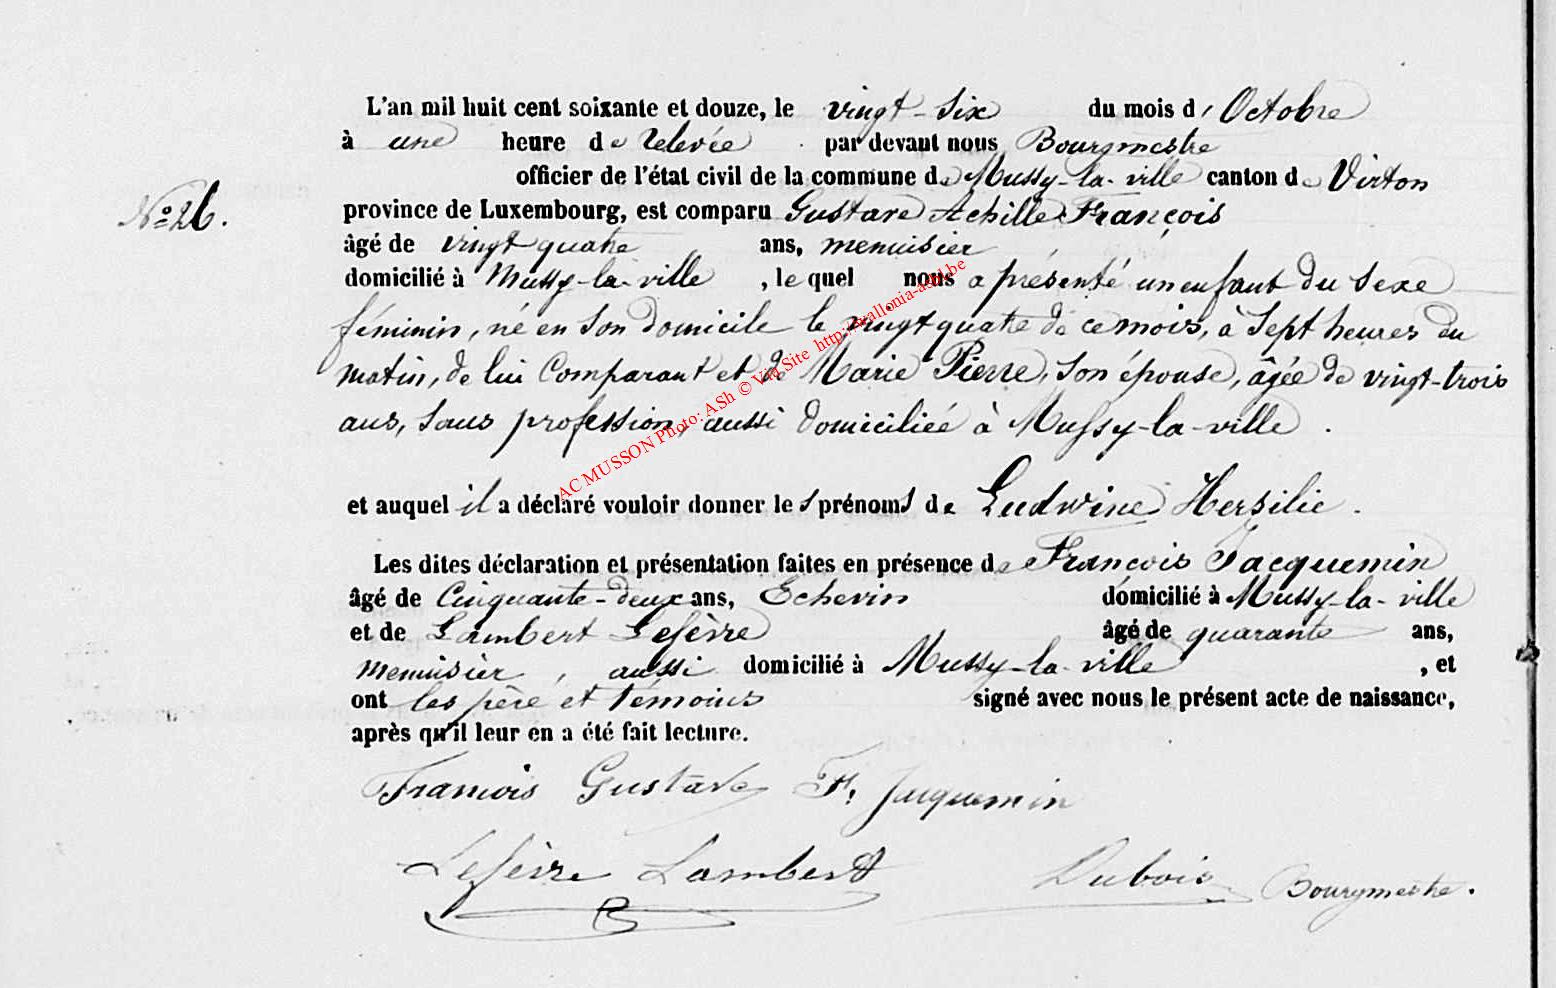 L'an mil huit cent soixante et douze, le vingt-six du mois d'Octobre
à une heure de relevée par devant nous Bourgmestre
officier de l'état civil de la commune de Mussy-la-ville canton de Virton
No 26.
province de Luxembourg, est comparu Gustave Achille François
âgé de vingt quatre ans, menuisier
domicilié à Mussy-la-ville, le quel nous a présenté un enfant du sexe
féminin, né en son domicile le vingt quatre de ce mois, à sept heures du
matin, de lui Comparant et de Marie Pierre, son épouse, âgée de vingt-trois
ans, sans profession, aussi domiciliée à Mussy-la-ville.
et auquel il a déclaré vouloir donner les prénoms de Ludwine Hersilie.
Les dites déclaration et présentation faites en présence de François Jacquemin
âgé de Cinquante-deux ans, Echevin domicilié à Mussy-la-ville
et de Lambert Lefèvre âgé de quarante ans,
menuisier, aussi domicilié à Mussy-la-ville, et
ont les père et témoins signé avec nous le présent acte de naissance,
après qu'il leur en a été fait lecture.
François Gustave F. Jacquemin
Lefèvre Lambert Dubois Bourgmestre.
AC MUSSON Photo: ASh © Via Site http://wallonia-ash.be